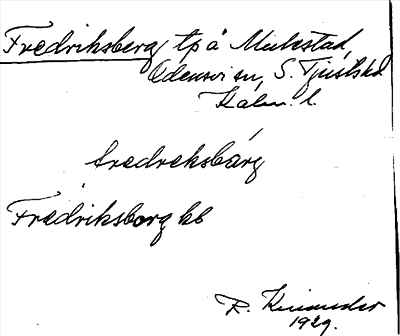 Fredriksberg tp å Mulstad,
Odensvi sn, S. Tjusts hd
Kalm. l.
fredreksbärg
Fredriksborg kb
R.
1929.